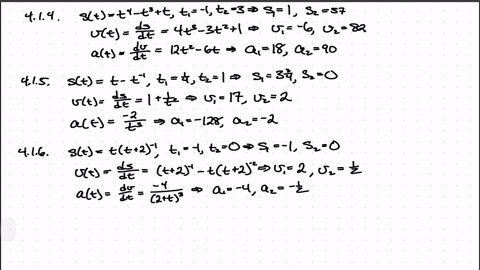 4.1.4. s(t) = t⁴ - t³ + t, t₁ = -1, t₂ = 3 ⇒ S₁ = 1, S₂ = 57
v(t) = ds/dt = 4t³ - 3t² + 1 ⇒ v₁ = -6, v₂ = 82
a(t) = dv/dt = 12t² - 6t ⇒ a₁ = 18, a₂ = 90
4.1.5. s(t) = t - t⁻¹, t₁ = ¼, t₂ = 1 ⇒ S₁ = 3¾, S₂ = 0
v(t) = ds/dt = 1 + 1/t² ⇒ v₁ = 17, v₂ = 2
a(t) = -2/t³ ⇒ a₁ = -128, a₂ = -2
4.1.6. s(t) = t(t+2)⁻¹, t₁ = -1, t₂ = 0 ⇒ S₁ = -1, S₂ = 0
v(t) = ds/dt = (t+2)⁻¹ - t(t+2)⁻² ⇒ v₁ = 2, v₂ = ½
a(t) = dv/dt = -4/(2+t)³ ⇒ a₁ = -4, a₂ = -½